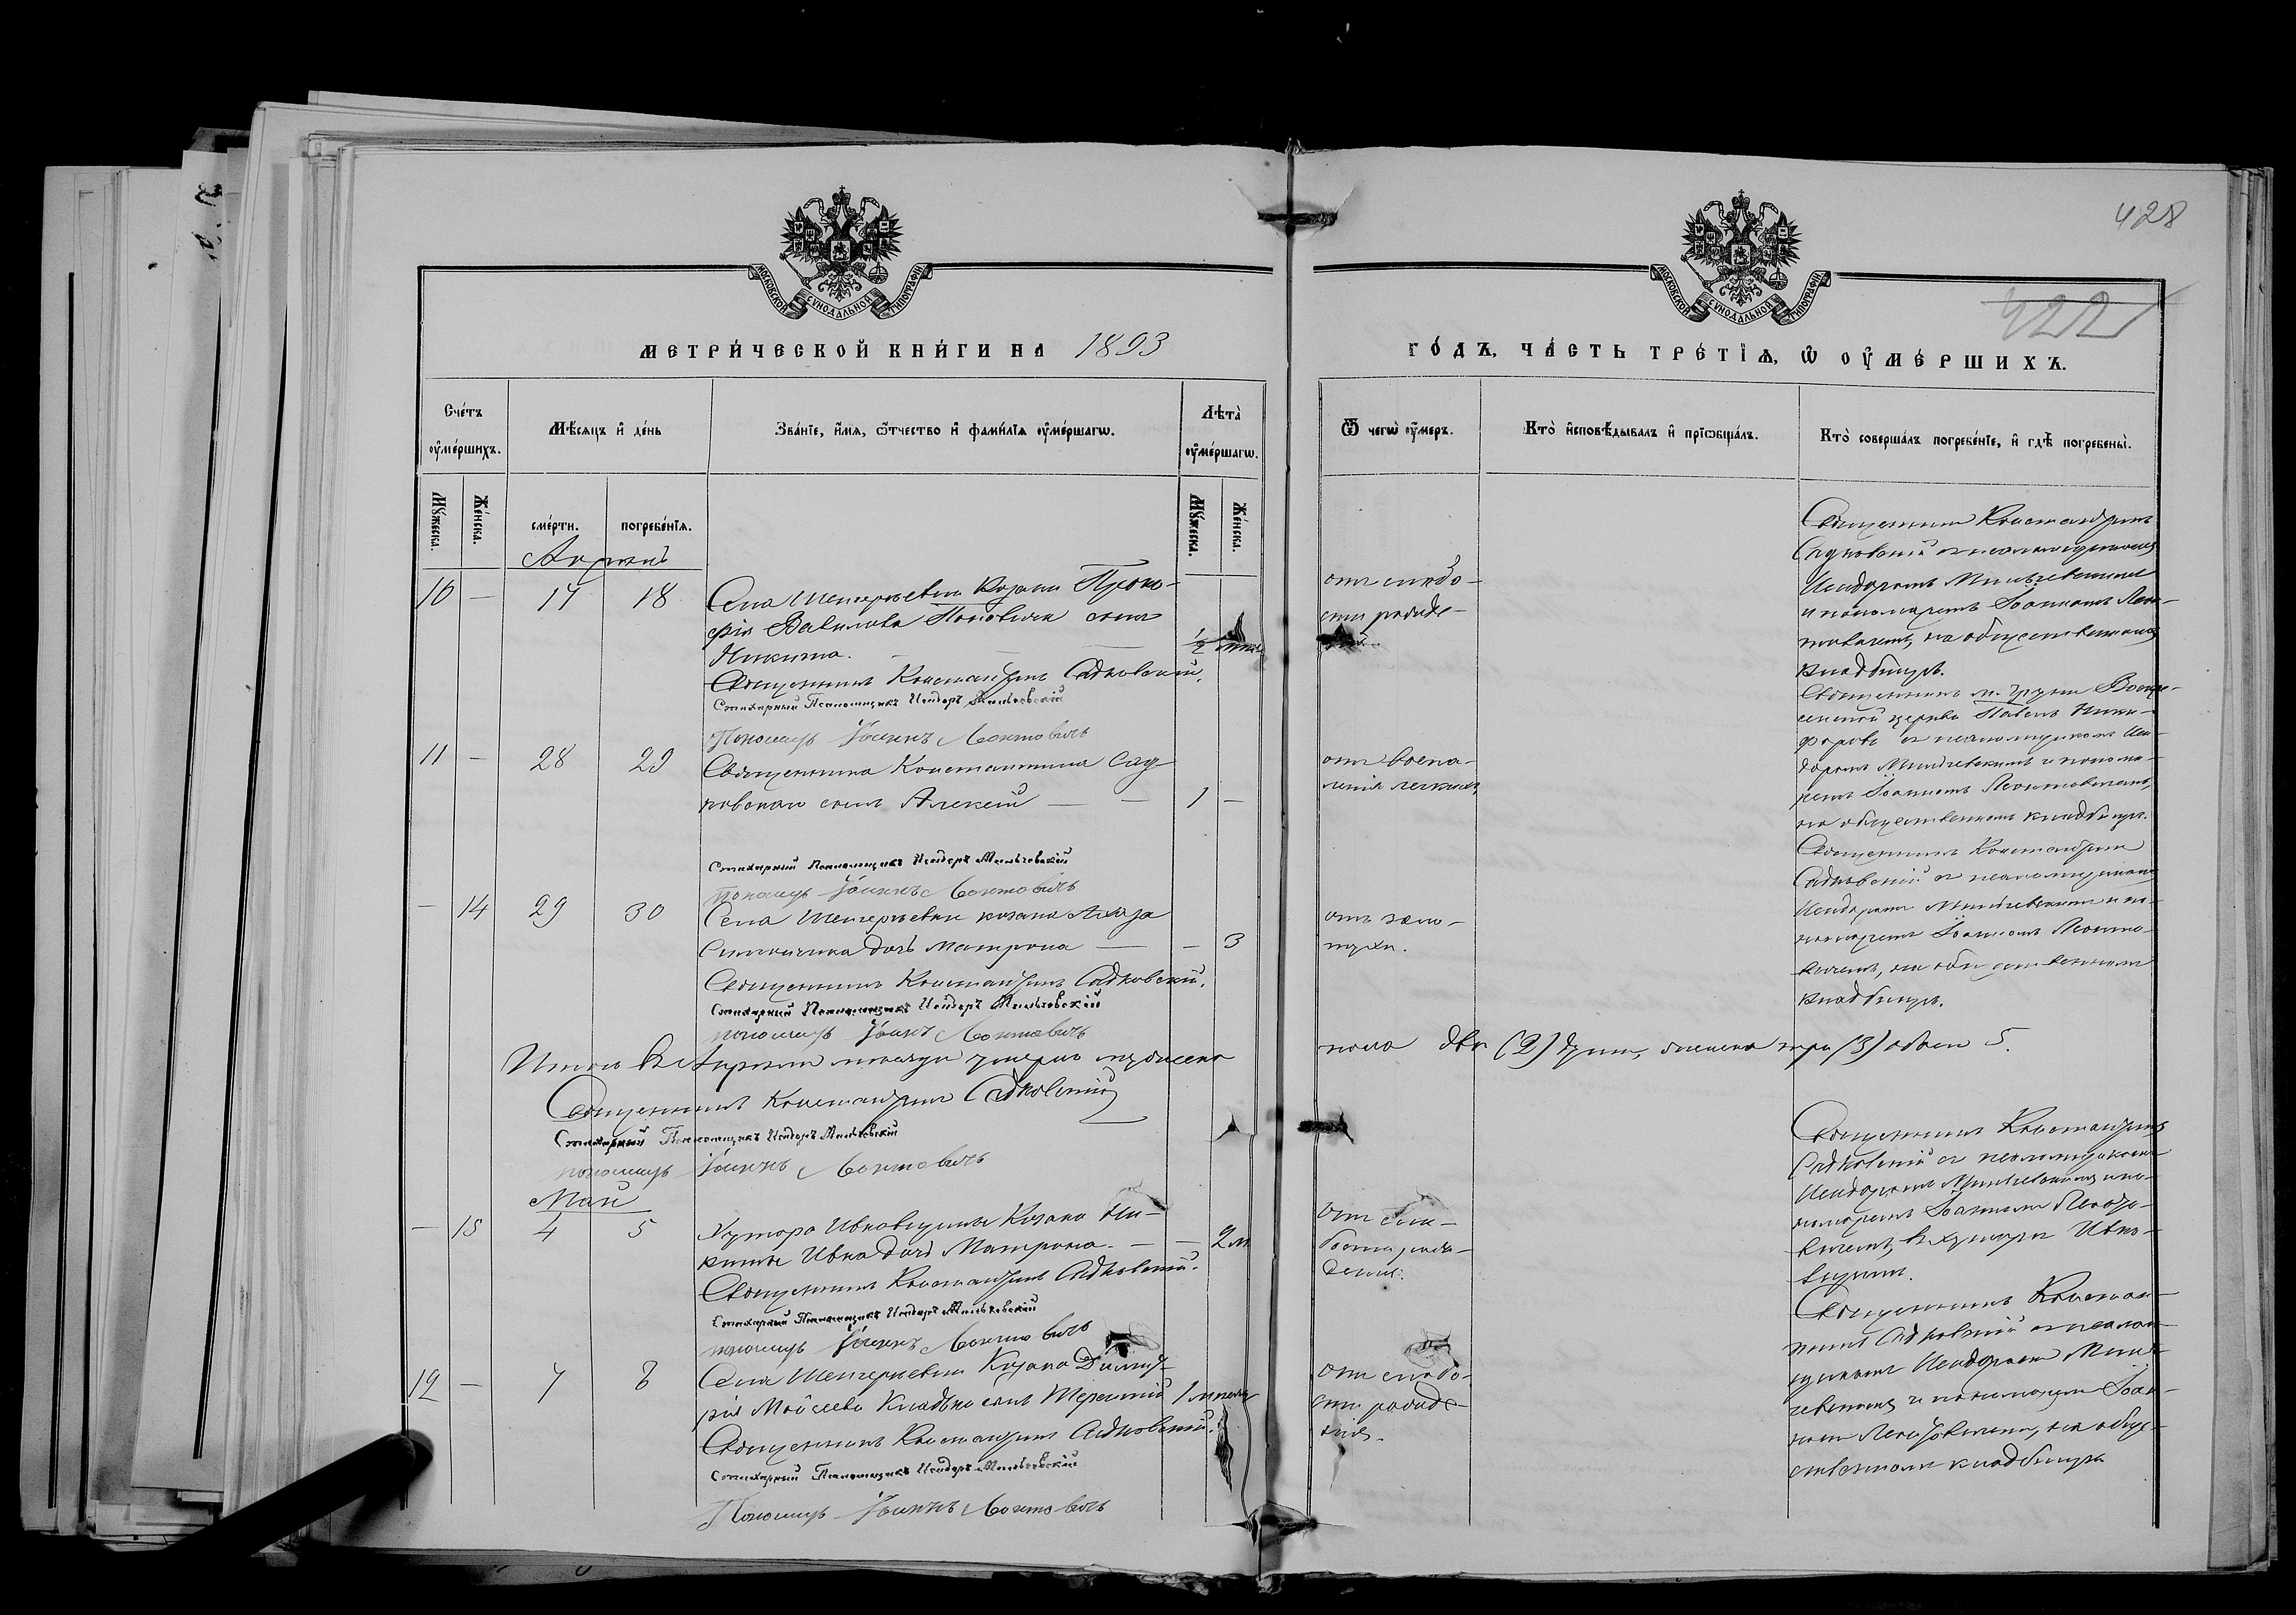 428
422
МОСКОВСКОЙ СѴНОДАЛЬНОЙ ТИПОГРАФІИ
МОСКОВСКОЙ СѴНОДАЛЬНОЙ ТИПОГРАФІИ
МЕТРИ́ЧЕСКОЙ КНИ́ГИ НА 1893
ГО́ДЪ, ЧА́СТЬ ТРЕ́ТІѦ, Ѡ ОУ҆МЕ́РШИХЪ.
Сче́тъ оу҆ме́ршихъ.
Мѣ́сяцъ и҆ де́нь
Зва́нїе, и҆́мя, ѻ҆́тчество и҆ фами́лїя оу҆ме́ршагѡ.
Лѣта̀ оу҆ме́ршагѡ.
Ѿ чегѡ̀ оу҆́меръ.
Кто̀ и҆сповѣ́дывалъ и҆ прїѡбща́лъ.
Кто̀ соверша́лъ погребе́нїе, и҆ гдѣ̀ погребены̀.
Мꙋ́жеска.
Же́нска.
сме́рти.
погребе́нїя.
Мꙋ́жеска.
Же́нска.
Апрѣль
10 — 17 18 Села Шенгеріевки Козака Проко-
фія Вавилова Поповича сынъ
Никита. —
Священникъ Константинъ Садковскій.
Стихарный Псаломщикъ Исидоръ Мильчевскій
Пономарь Іоаннъ Леонтовичъ
от слабо-
сти рожде-
Священникъ Константинъ
Садковскій съ псаломщикомъ
Исидоромъ Мильчевскимъ
и пономаремъ Іоанномъ Леон-
товичемъ, на общественномъ
кладбищѣ.
11 — 28 29 Священника Константина Сад-
ковскаго сынъ Алексій — — 1 —
Стихарный Псаломщикъ Исидоръ Мильчевскій
Пономарь Іоаннъ Леонтовичъ
от воспа-
ленія легкихъ
Священникъ м. Груни Воскре-
сенской церкви Павелъ Ники-
форовъ съ псаломщикомъ Иси-
доромъ Мильчевскимъ и понома-
ремъ Іоанномъ Леонтовичемъ,
на общественномъ кладбищѣ.
— 14 29 30 Села Шенгеріевки козака
дочь Матрона — — 3
Священникъ Константинъ Садковскій.
Стихарный Псаломщикъ Исидоръ Мильчевскій
пономарь Іоаннъ Леонтовичъ
от золо-
тухи.
Священникъ Константинъ
Садковскій съ псаломщикомъ
Исидоромъ Мильчевскимъ и по-
номаремъ Іоанномъ Леонто-
вичемъ, на общественномъ
кладбищѣ.
Итого въ Апрѣлѣ мѣсяцѣ умерло мужеска
пола двѣ (2) души, женска три (3) обоего 5.
Священникъ Константинъ Садковскій
Стихарный Псаломщикъ Исидоръ Мильчевскій
пономарь Іоаннъ Леонтовичъ
Май
— 15 4 5 Хутора Козака Ни-
киты Ивка дочь Матрона. — — 2 м.
Священникъ Константинъ Садковскій.
Стихарный Псаломщикъ Исидоръ Мильчевскій
пономарь Іоаннъ Леонтовичъ
От сла-
бости рож-
денія.
Священникъ Константинъ
Садковскій съ псаломщикомъ
Исидоромъ Мильчевскимъ и по-
номаремъ Іоанномъ Леонто-
вичемъ, въ хуторѣ
12 — 7 8 Села Шенгеріевки Козака Димит-
рія Моисеева сынъ Терентій
Священникъ Константинъ Садковскій.
Стихарный Псаломщикъ Исидоръ Мильчевскій
Пономарь Іоаннъ Леонтовичъ
От слабо-
сти рожде-
нія.
Священникъ Констан-
тинъ Садковскій съ псалом-
щикомъ Исидоромъ Миль-
чевскимъ и пономаремъ Іоан-
номъ Леонтовичемъ, на обще-
ственномъ кладбищѣ